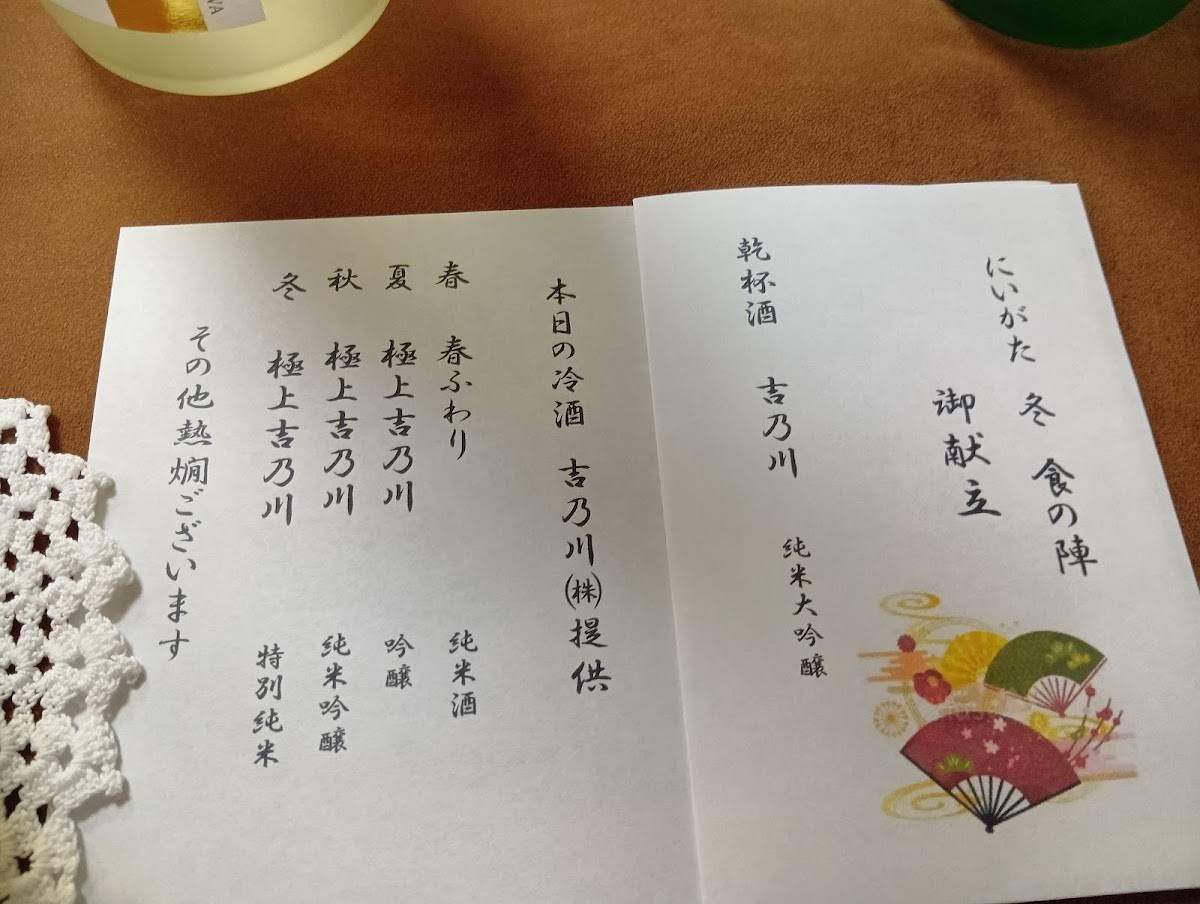 にいがた 冬 食の陣
御献立
乾杯酒 吉乃川 純米大吟醸
本日の冷酒 吉乃川㈱提供
春 春ふわり 純米酒
夏 極上吉乃川 吟醸
秋 極上吉乃川 純米吟醸
冬 極上吉乃川 特別純米
その他熱燗ございます